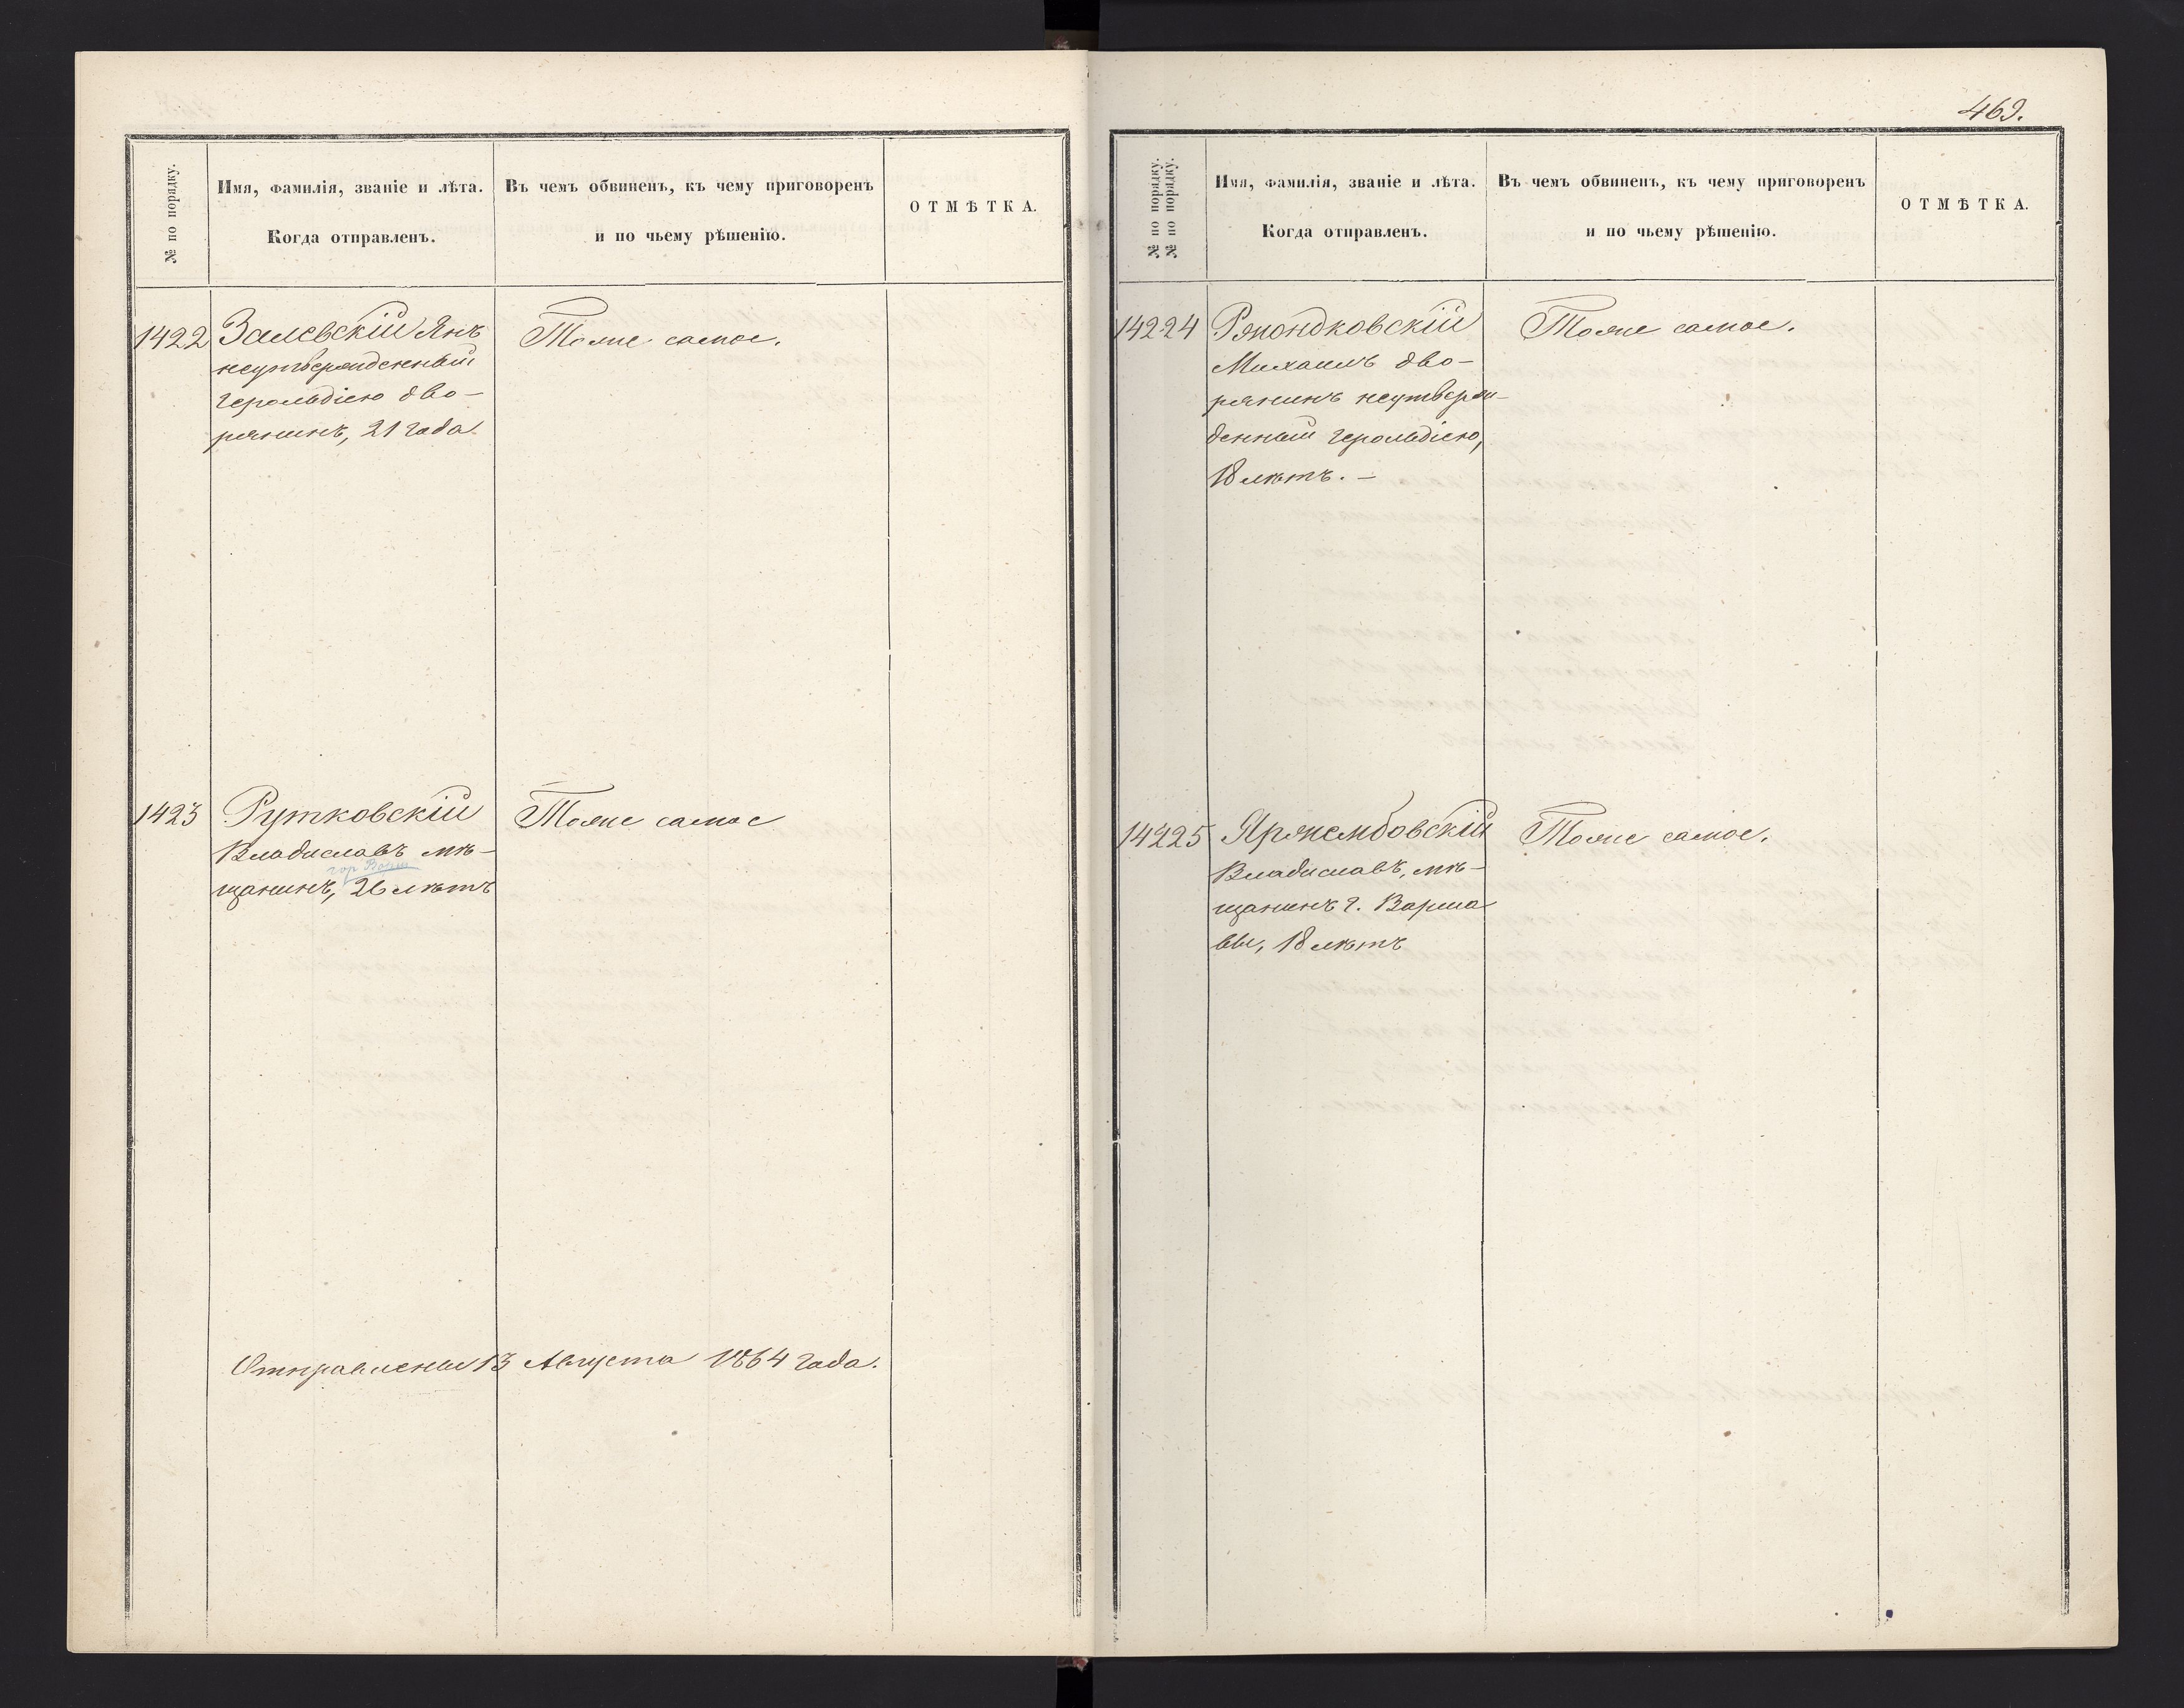 № по порядку.
Имя, фамилія, званіе и лѣта.
Когда отправленъ.
Въ чемъ обвиненъ, къ чему приговоренъ
и по чьему рѣшенію.
ОТМѢТКА.
1422
Залевскій Янъ
неутвержденный
герольдіею дво-
рянинъ, 21 года.
Тоже самое.
1423
Рутковскій
Владиславъ мѣ-
гор Варш
щанинъ, 26 лѣтъ
Тоже самое
Отправлены 13 Августа 1864 года.
469.
№ по порядку.
№ по порядку.
Имя, фамилія, званіе и лѣта.
Когда отправленъ.
Въ чемъ обвиненъ, къ чему приговоренъ
и по чьему рѣшенію.
ОТМѢТКА.
14224
Ржондковскій
Михаилъ дво-
рянинъ неутверж-
денный герольдіею,
18 лѣтъ. —
Тоже самое.
14225
Яржембовскій
Владиславъ, мѣ-
щанинъ г. Варша
вы, 18 лѣтъ
Тоже самое.